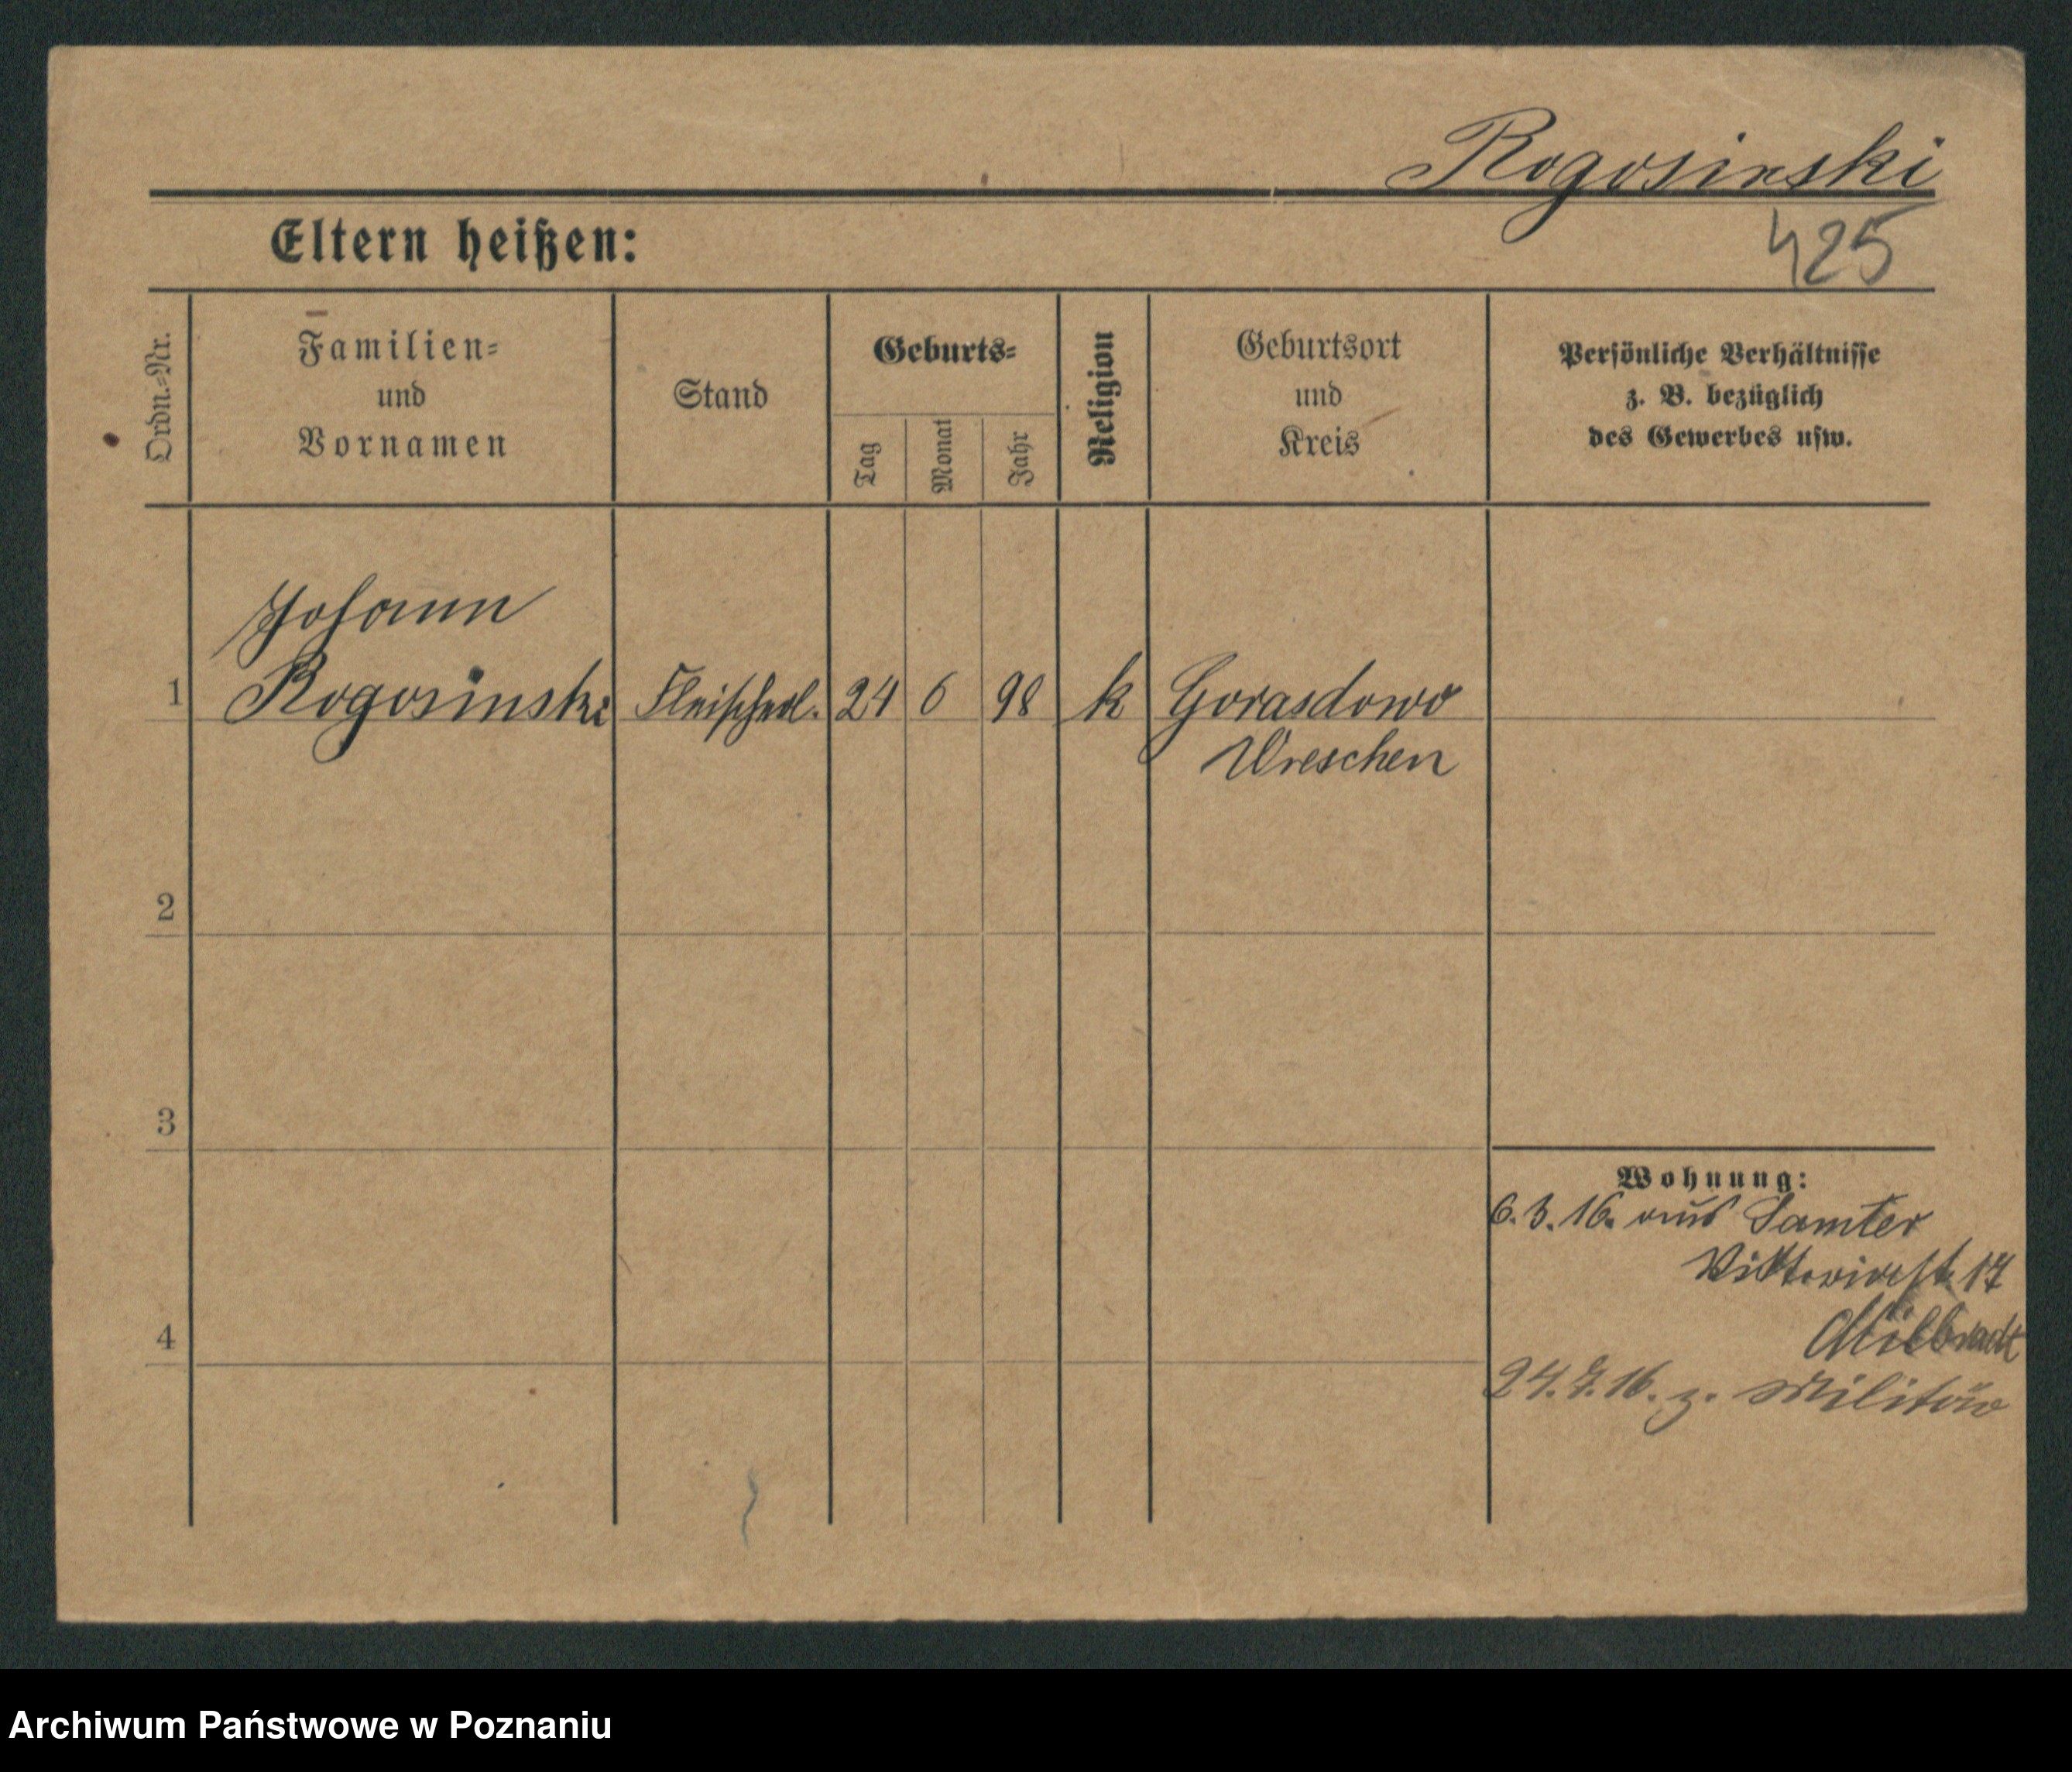 Rogosinski
425
Eltern heißen:
Ordn.=Nr.
Familien=
und
Vornamen
Stand
Geburts=
Tag
Monat
Jahr
Religion
Geburtsort
und
Kreis
Persönliche Verhältnisse
z. B. bezüglich
des Gewerbes usw.
Johann
1 Rogosinski Fleischerl. 24 6 98 k Gorasdowo
Wreschen
2
3
4
Wohnung:
6.3.16. aus Samter
Viktoriastr. 17
Milbradt
24.7.16. z. Militär
Archiwum Państwowe w Poznaniu